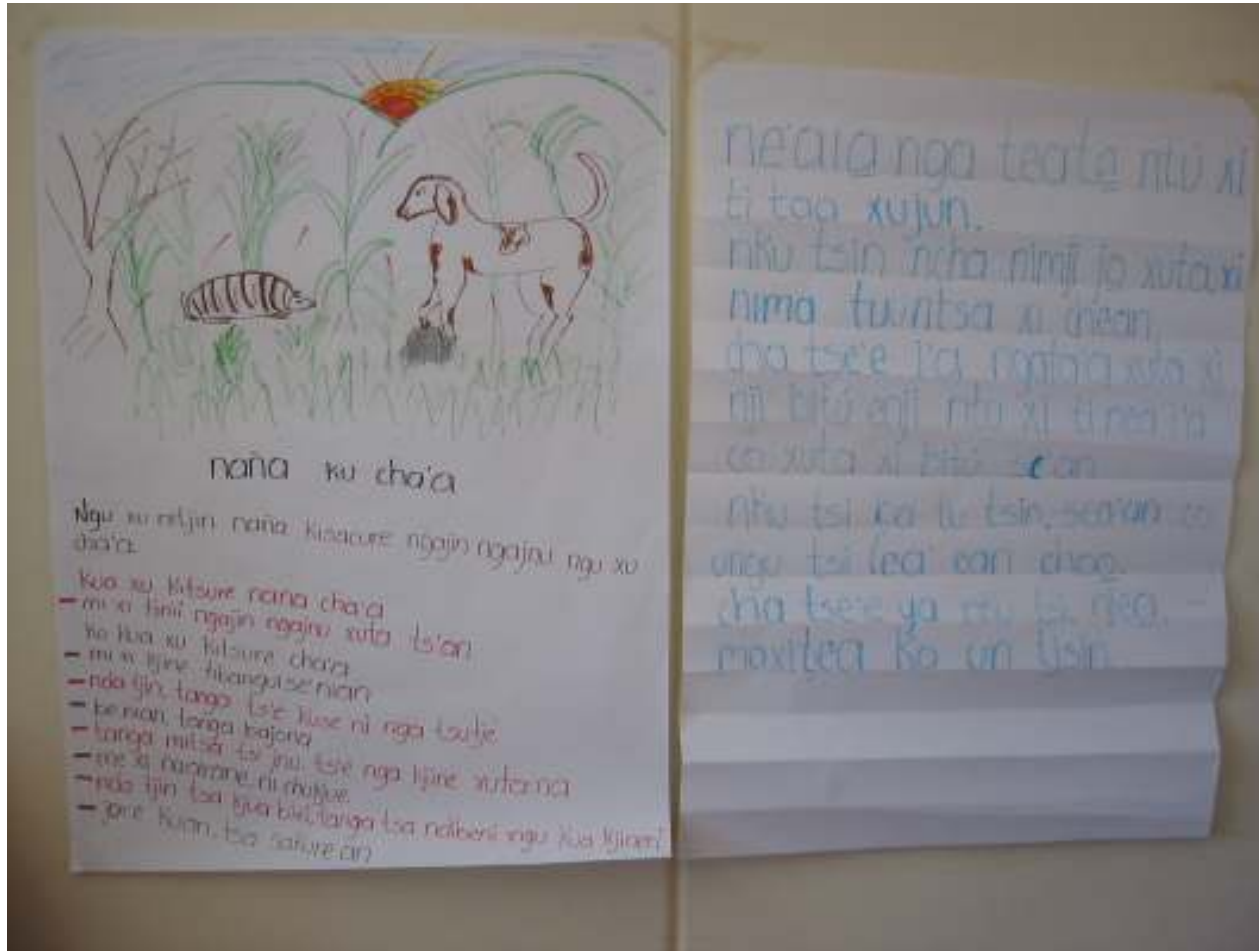 naña ku cha'a
Ngu xu nitjin naña kisacure ngajin ngajnu ngu xu
cha'a.
kua xu kitsure naña cha'a
- mi xi tinii ngajin ngajnu xuta ts'an
ko kua xu kitsure cha'a
- mi xi kjine tibangui se nian
- nda tjin, tanga ts'e kuse ni nga tsutje
- be nian, tanga bajona
- tanga mitsa tsi jnu, ts'e nga kjine xuta na
- me xi
- nda tjin tsa kjua tanga tsa ndibeni ngu kua kjineri
- jaré kuan, tsa an
ne'ala nga teate ntu xi
ti taa xujun.
nku tsin ncha nimji jo xuta xi
nima tuintsa xi
cha tse'e xuta xi
nji bitú ntu xi
co xuta xi bitú se'an
nku tsi ka tu tsin, sea'an co
ungu tsi lea can chao.
cha tse'e ya ntu tsi
maxitea ko un tjsin.